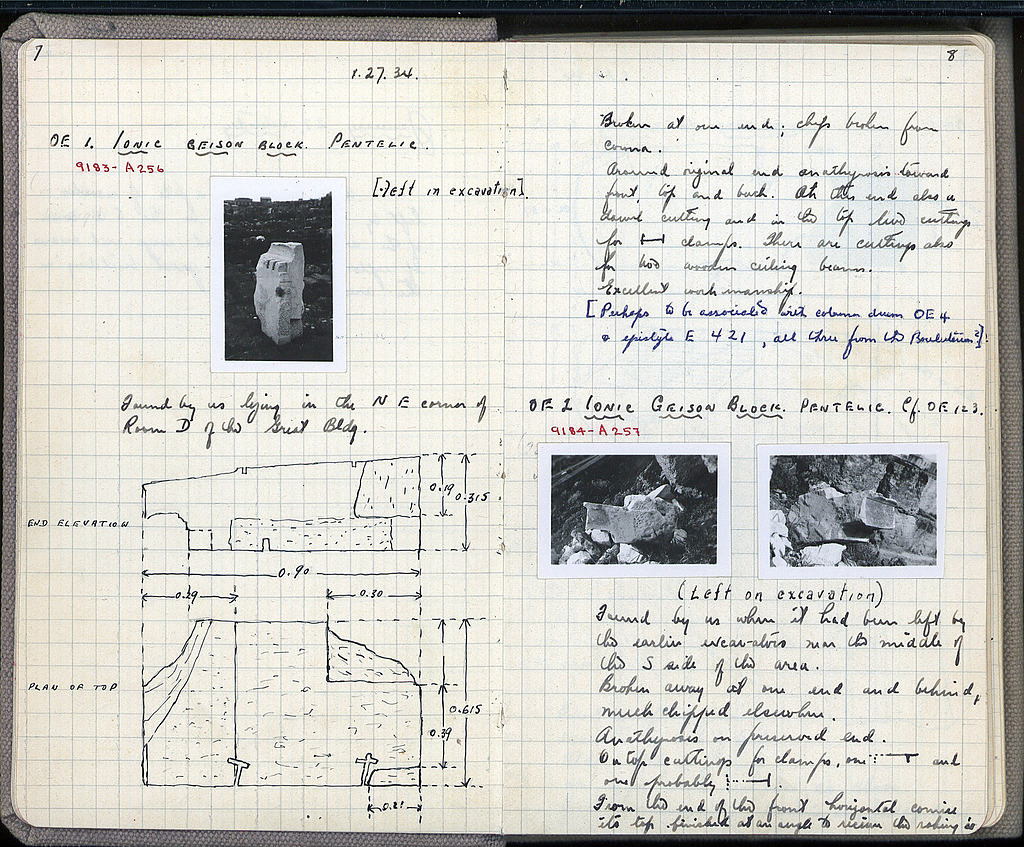 7
1.27.34.
OE 1. IONIC GEISON BLOCK. PENTELIC.
9183-A256
[Left in excavation].
Found by us lying in the N E corner of
Room D of the Great Bldg.
END ELEVATION
0.19
0.315
0.90
0.29
0.30
PLAN OF TOP
0.615
0.39
0.21
8
Broken at one end; chips broken from
corona.
Around original end anathyrosis toward
front, top and back. At this end also a
dowel cutting and in the top two cuttings
for clamps. There are cuttings also
for two wooden ceiling beams.
Excellent workmanship.
[Perhaps to be associated with column drum OE 4
& epistyle E 421, all three from the Bouleuterion?]
OE 2 IONIC GEISON BLOCK. PENTELIC. Cf. OE 123.
9184-A257
(Left on excavation)
Found by us where it had been left by
the earlier excavators near the middle of
the S side of the area.
Broken away at one end and behind,
much chipped elsewhere.
Anathyrosis on preserved end.
On top cuttings for clamps, one and
one probably
From the end of the front horizontal cornice
its top finished at an angle to receive the raking